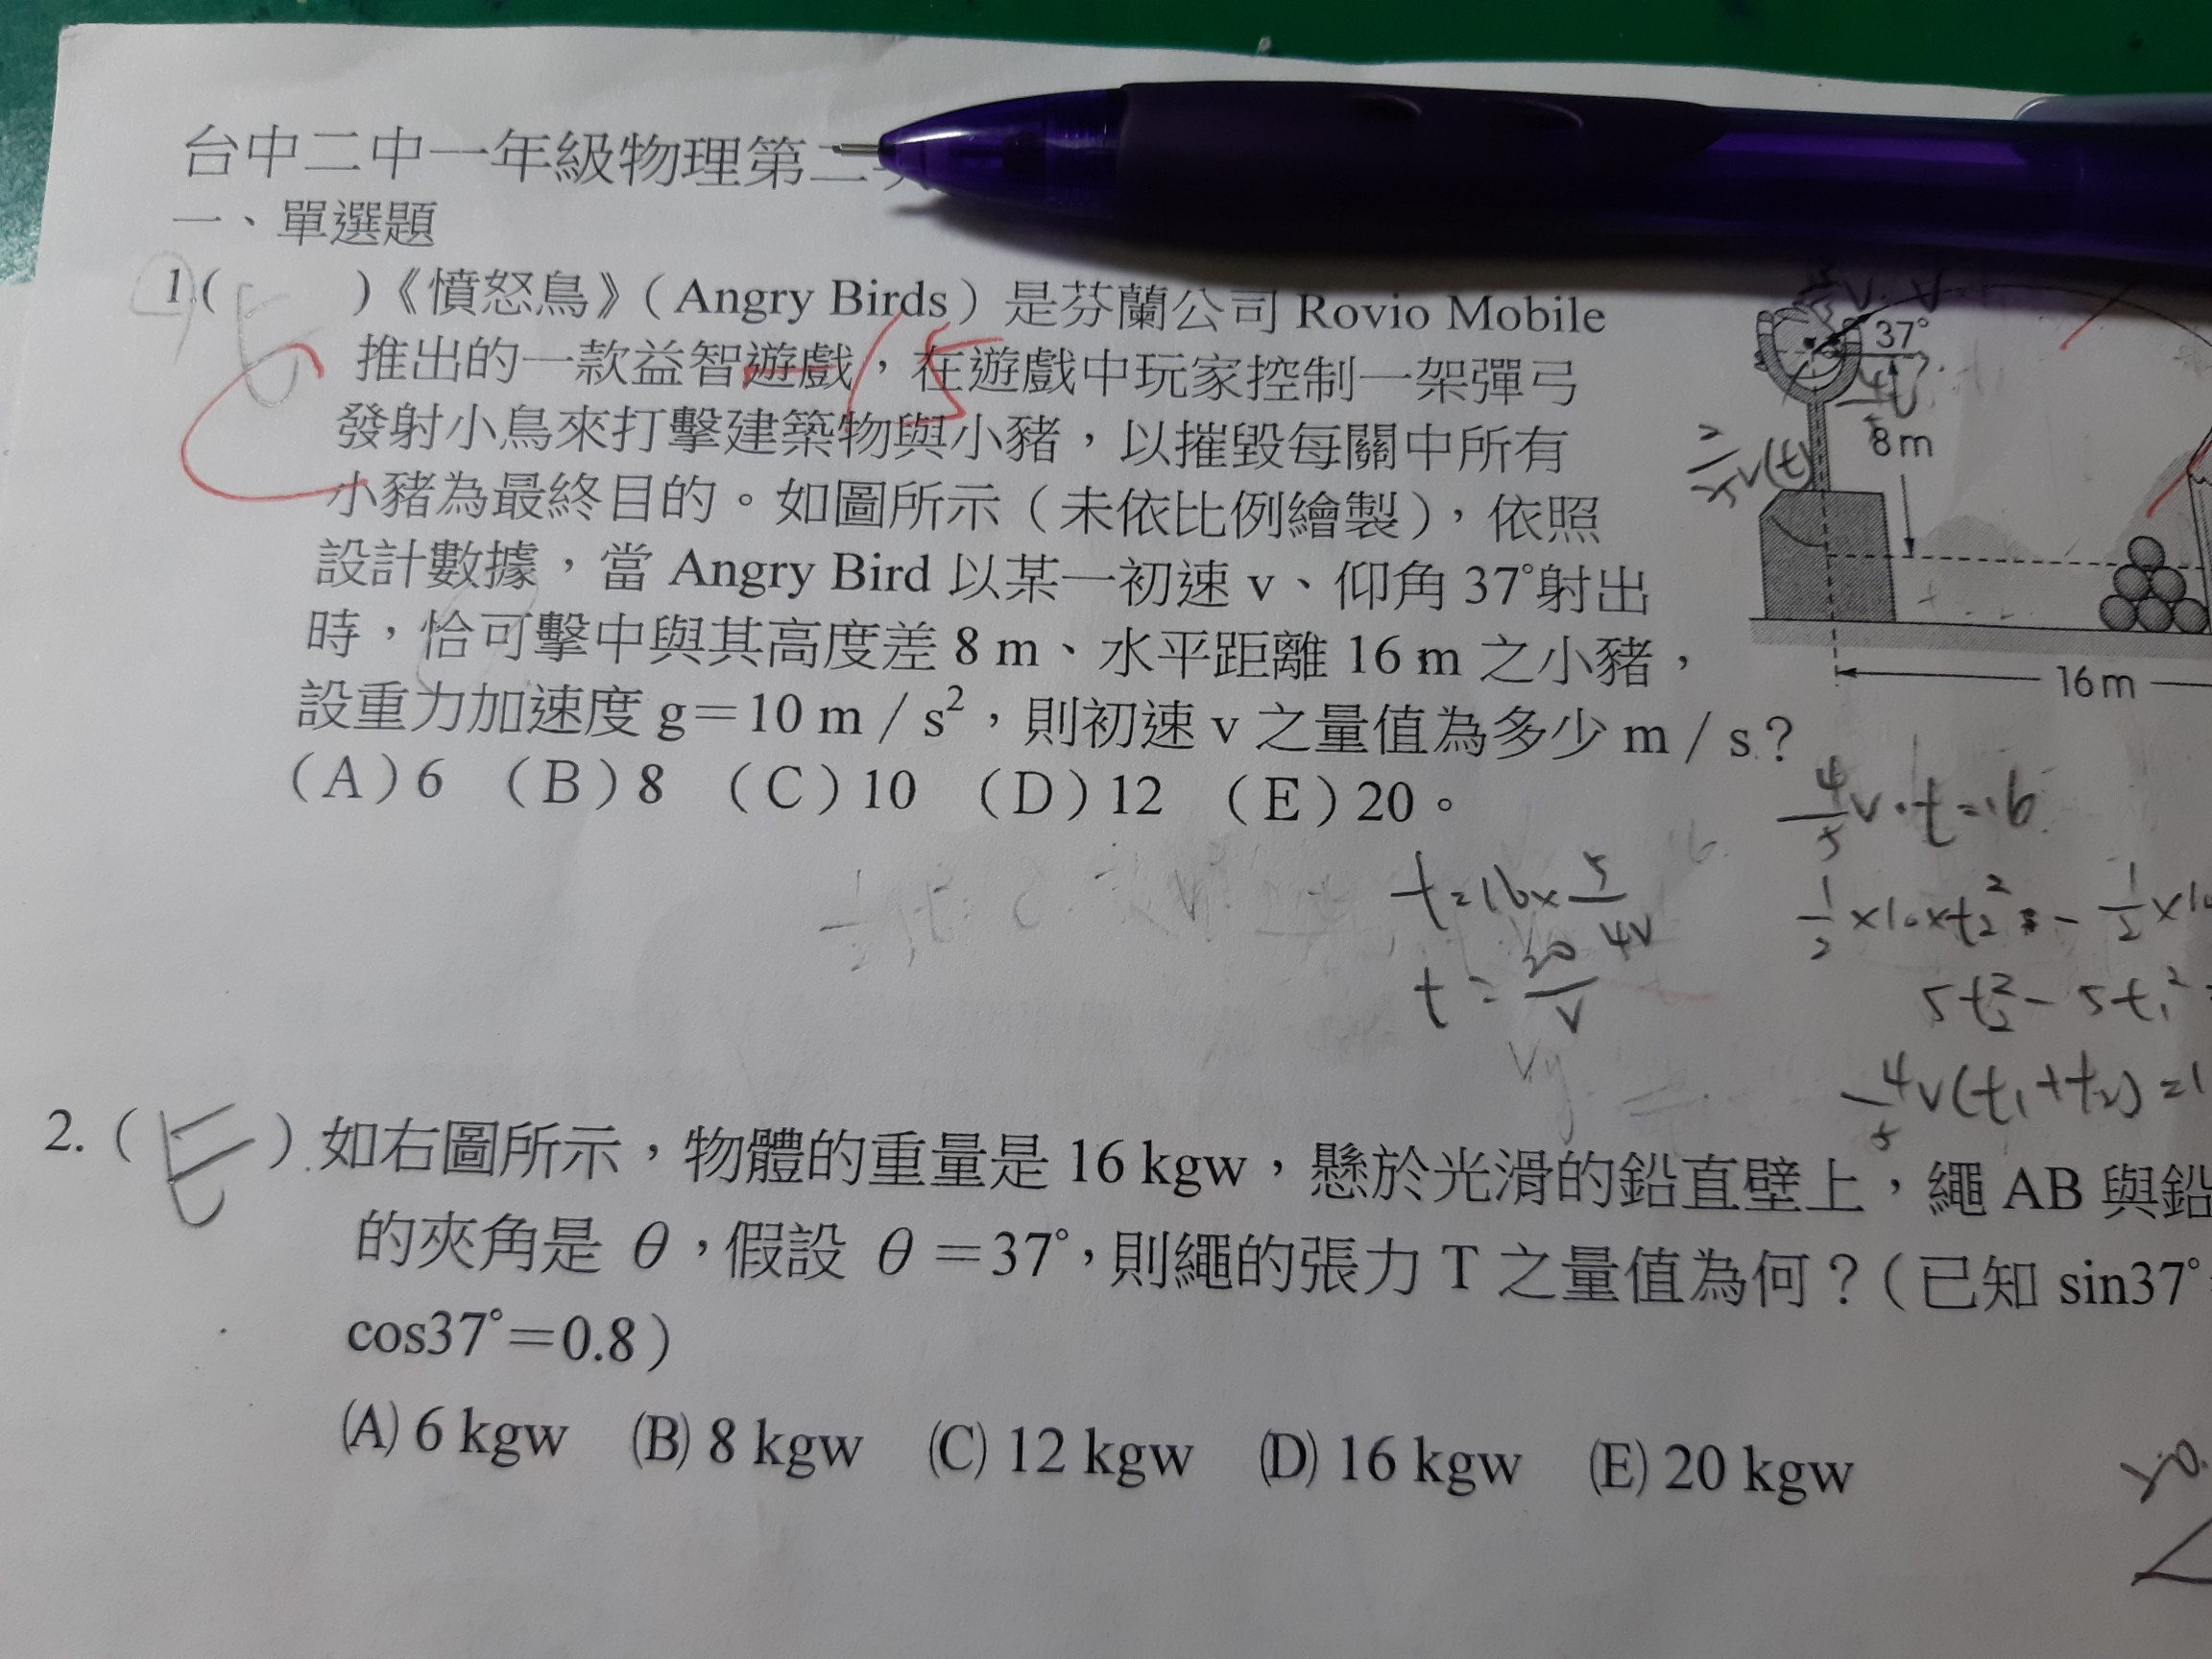 台中二中一年級物理第二
一、單選題
1.( )《憤怒鳥》(Angry Birds)是芬蘭公司 Rovio Mobile
推出的一款益智遊戲,在遊戲中玩家控制一架彈弓
發射小鳥來打擊建築物與小豬,以摧毀每關中所有
小豬為最終目的。如圖所示(未依比例繪製),依照
設計數據,當 Angry Bird 以某一初速 v、仰角 37°射出
時,恰可擊中與其高度差 8 m、水平距離 16 m 之小豬,
設重力加速度 g=10 m/s²,則初速 v 之量值為多少 m/s?
(A)6 (B)8 (C)10 (D)12 (E)20。
37°
8m
16m
4/5 v·t=16
t=16×5/4v
t=20/v
1/2×10×t₂²=-1/2×10
5t₂²-5t₁²=
4/5v(t₁+t₂)=1
Vy
2.(E)如右圖所示,物體的重量是 16 kgw,懸於光滑的鉛直壁上,繩 AB 與鉛
的夾角是 θ,假設 θ=37°,則繩的張力 T 之量值為何?(已知 sin37°
cos37°=0.8)
(A) 6 kgw (B) 8 kgw (C) 12 kgw (D) 16 kgw (E) 20 kgw